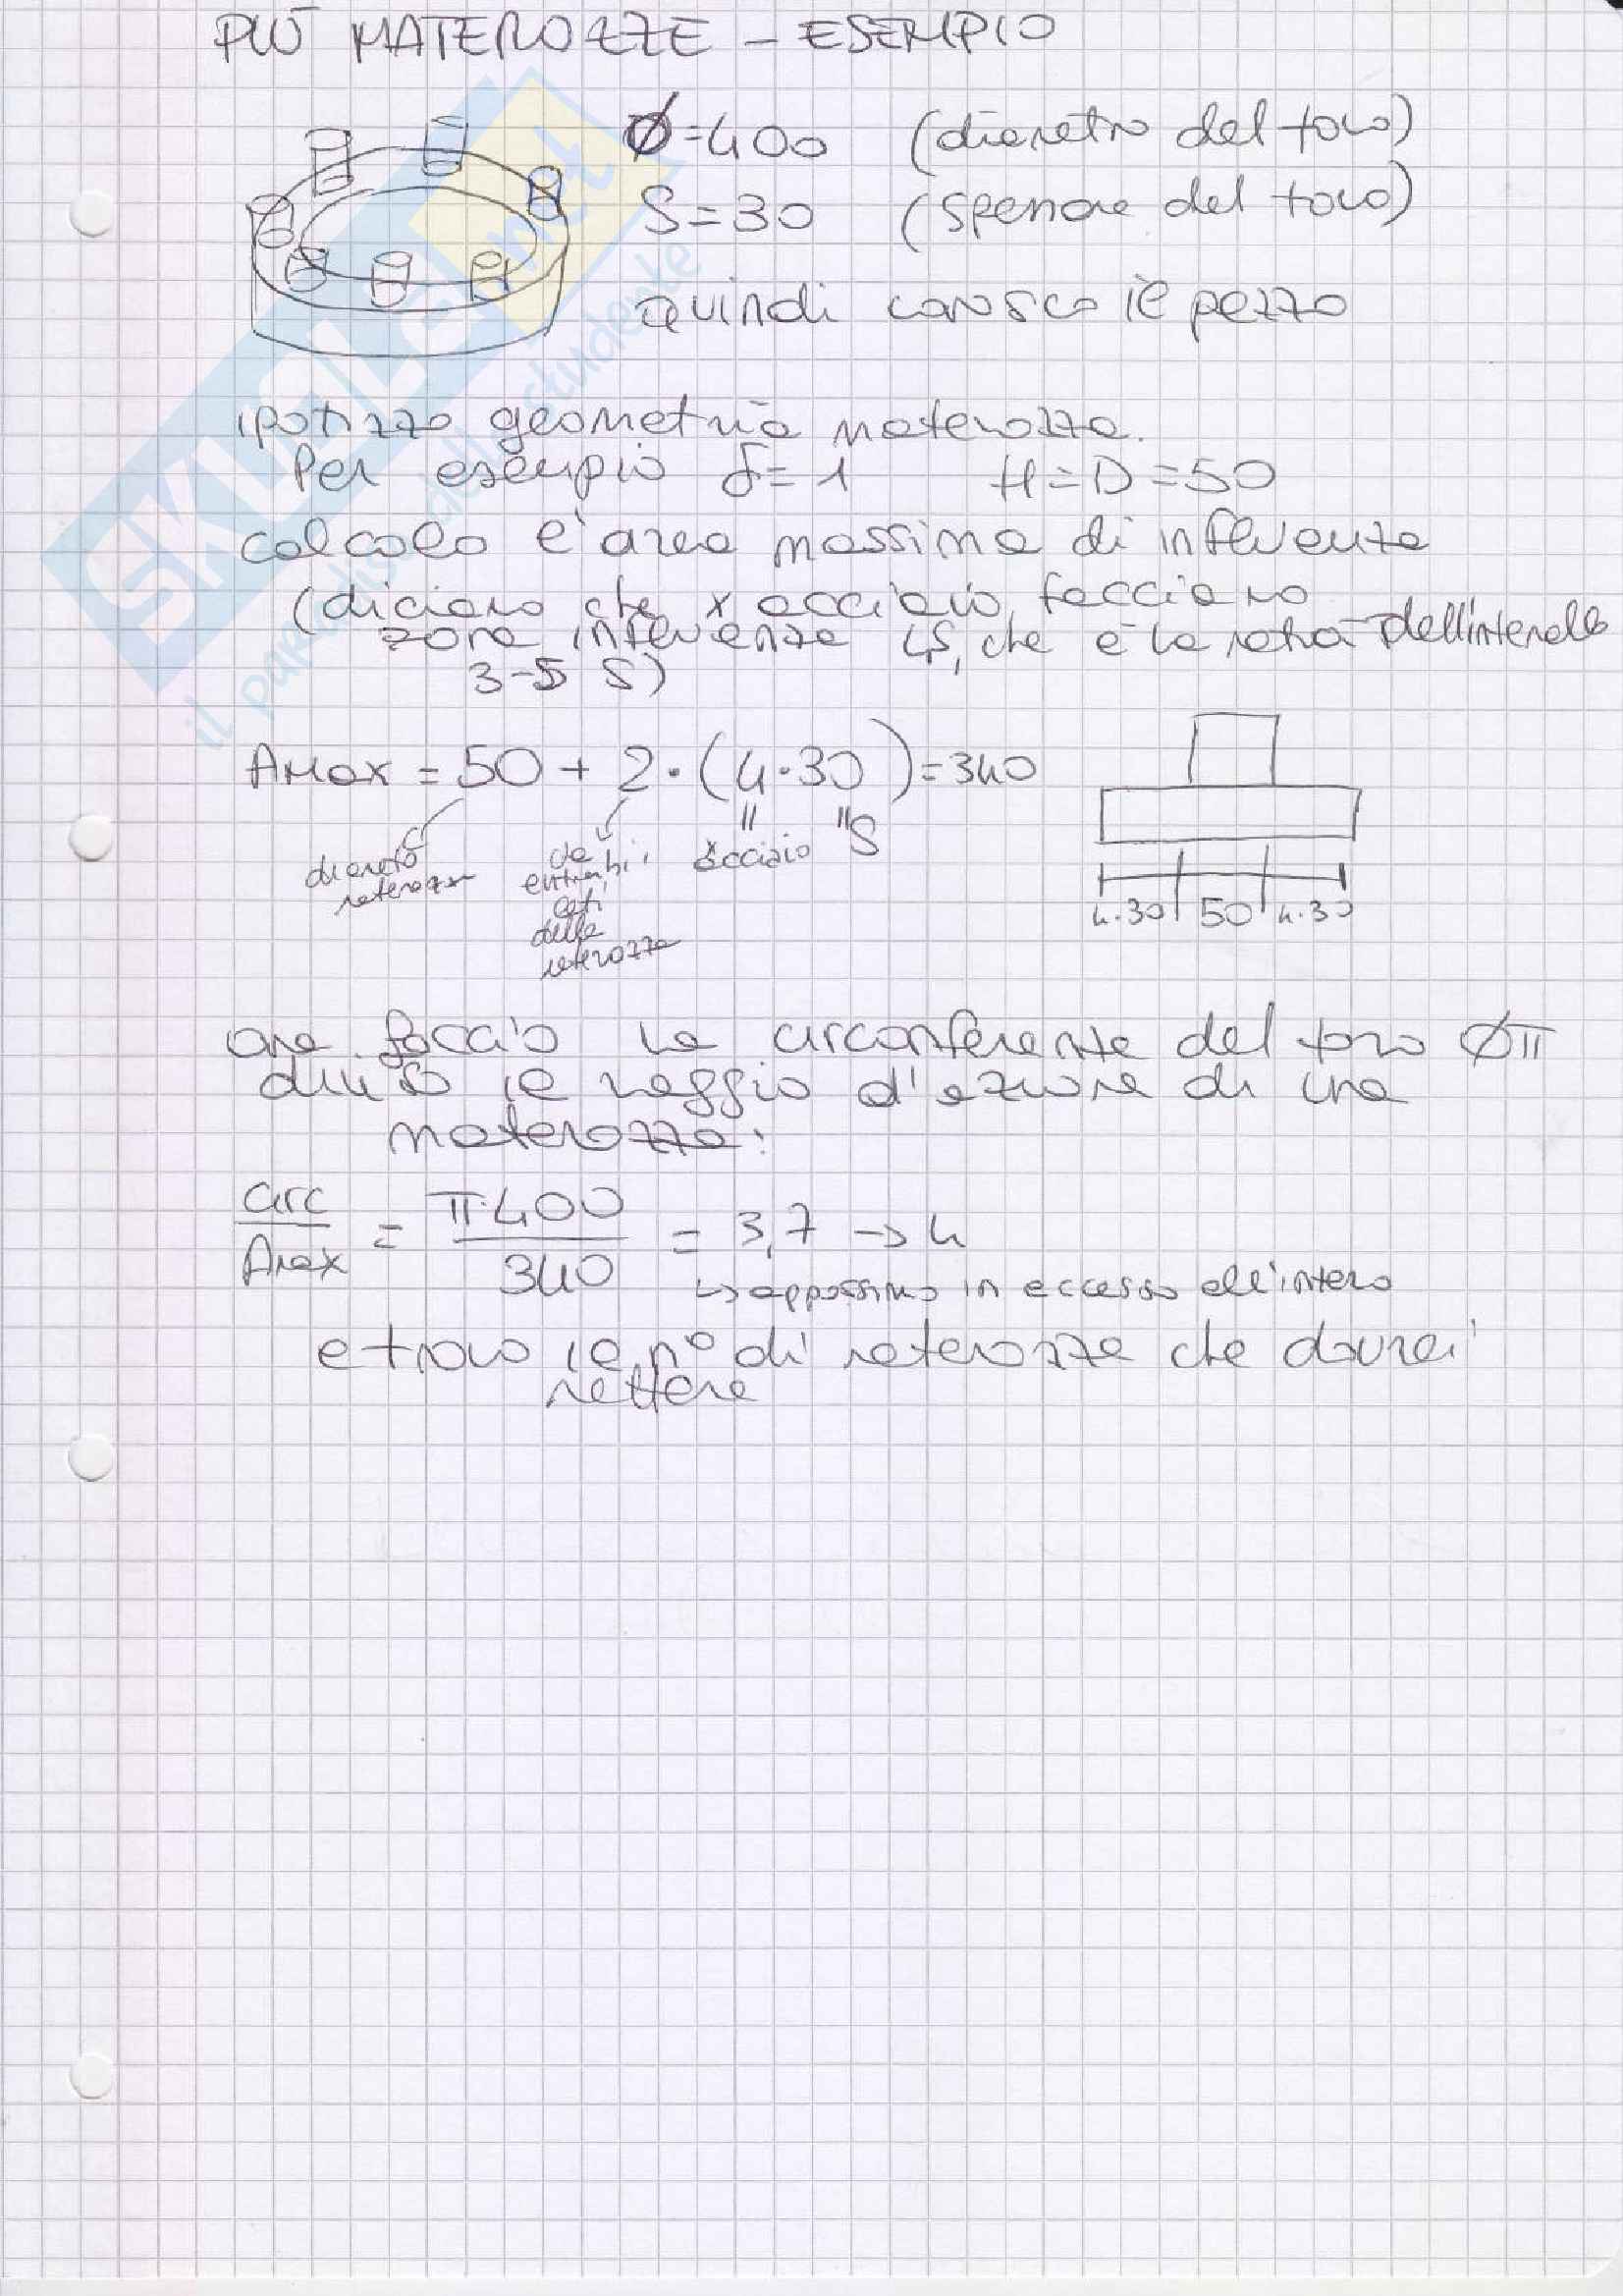 PIÙ MATEROZZE - ESEMPIO
Ø=400 (diametro del toro)
S=30 (spessore del toro)
quindi conosco il pezzo
ipotizzo geometria materozza.
Per esempio δ=1 H=D=50
calcolo l'area massima di influenza
(diciamo che x acciaio, facciamo
zona influenza 4S, che è la metà dell'intervallo
3-5 S)
Amax = 50 + 2·(4·30)=340
diametro materozza
da entrambi i lati della materozza
x acciaio
S
4·30 50 4·30
ora faccio la circonferenza del toro Øπ
diviso il raggio d'azione di una
materozza:
circ/Amax = π·400/340 = 3,7 → 4
↳ approssimo in eccesso all'intero
e trovo il n° di materozze che dovrei
mettere
SKUOLA.net
il paradiso dello studente